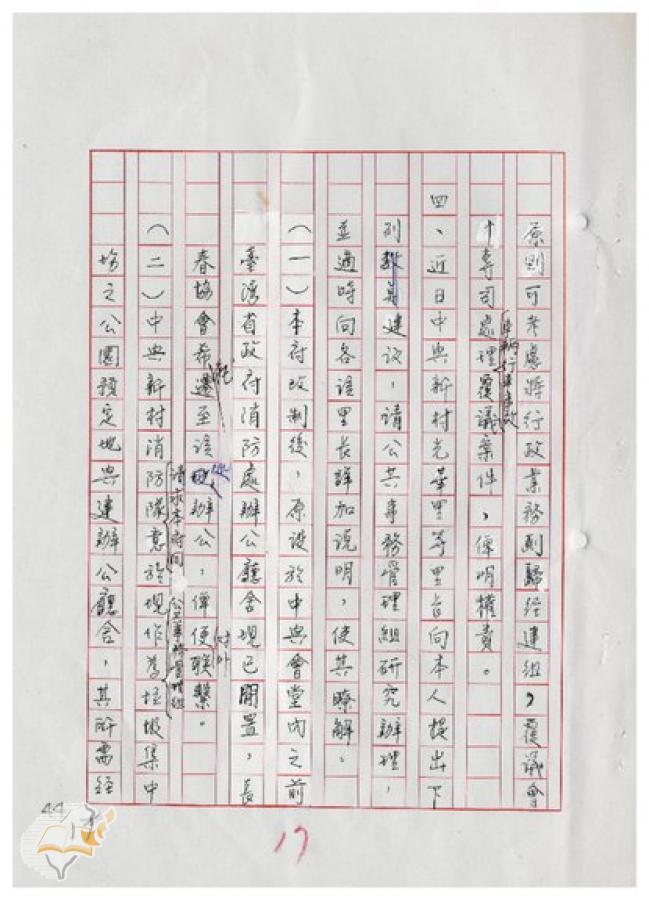 原則可考慮將行政業務劃歸經建組，覆議會
十專司處理車輛行車事故覆議案件，俾明權責。
四、近日中興新村光華里等里長向本人提出下
列數算建議，請公共事務管理組研究辦理，
並適時向各該里長詳加說明，使其瞭解。
（一）本府改制後，原設於中興會堂內之前
臺灣省政府消防處辦公廳舍現已閒置，長
春協會希能遷至該處辦公，俾便對外聯繫。
（二）中興新村消防隊請求本府同意於現作為垃圾集中
場之公園預定地興建辦公廳舍，其所需經
44
17